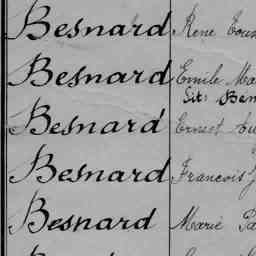 Besnard René
Besnard Emile
dit: Ben
Besnard Ernest
Besnard François
Besnard Marie